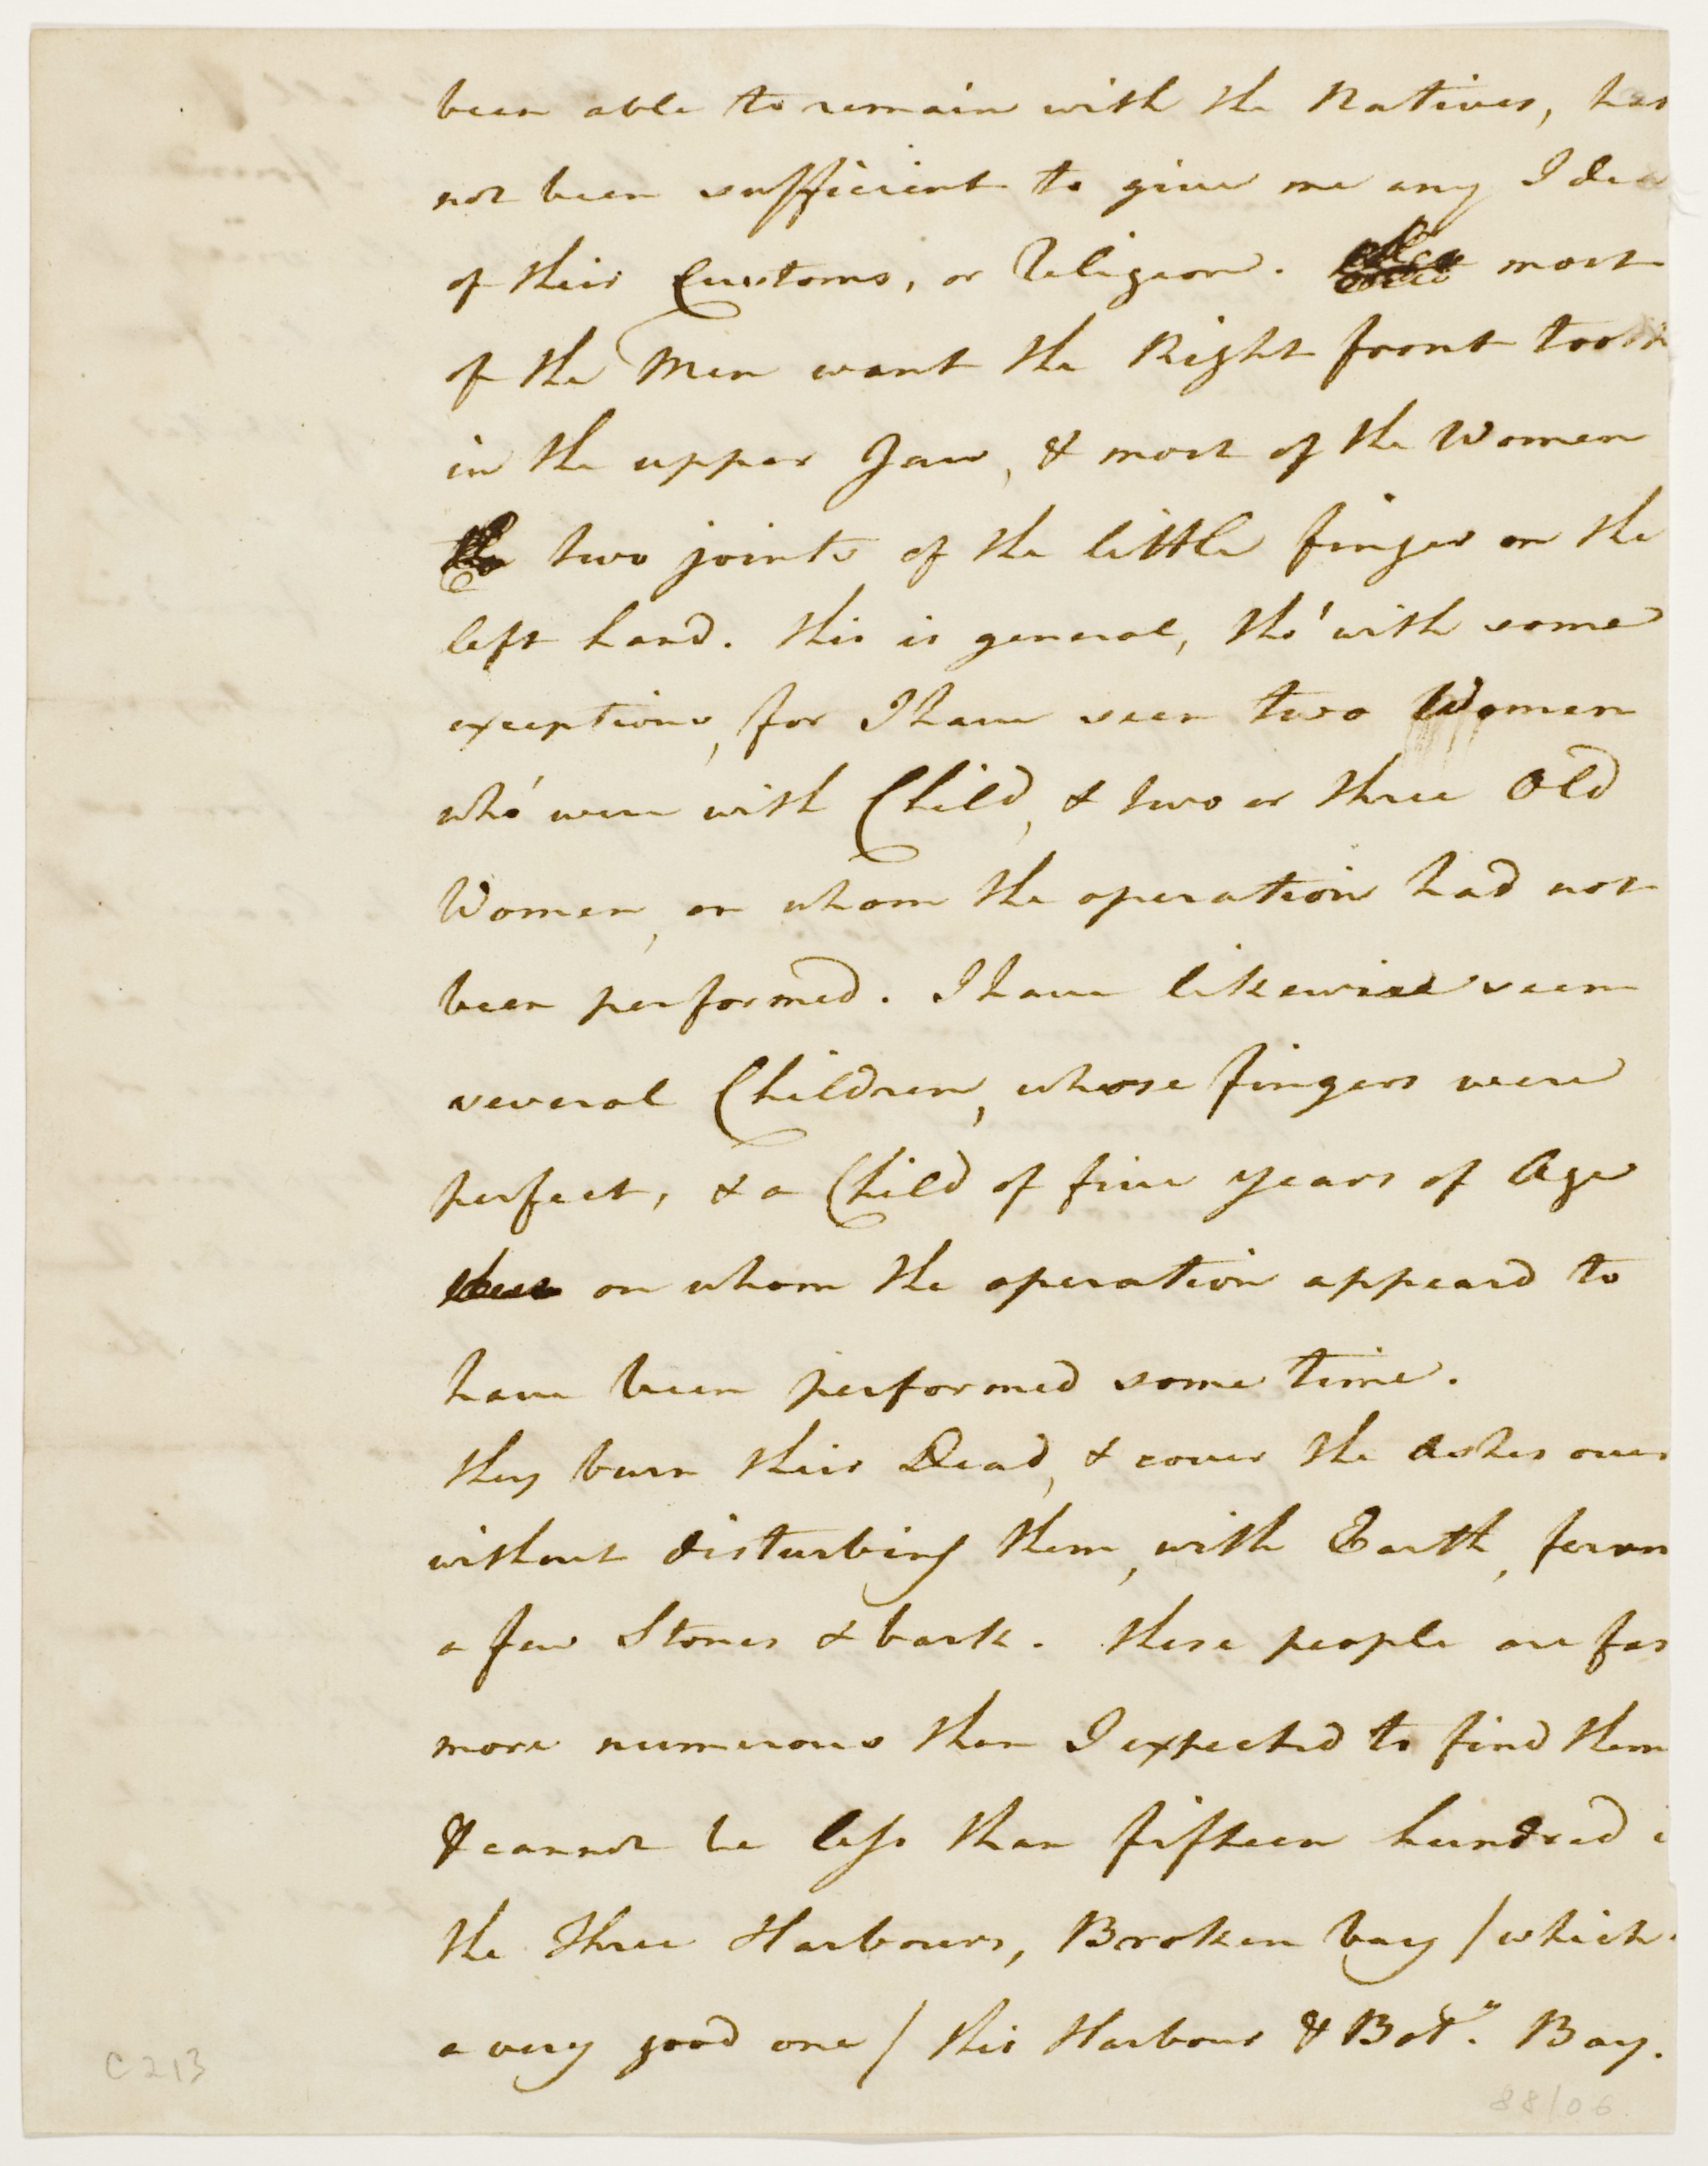 been able to remain with the Natives, has
not been sufficient to give me any Idea
of their Customs, or Religion. most
of the Men want the Right front tooth
in the upper Jaw, & most of the Women
the two joints of the little finger on the
left hand. this is general, tho' with some
exceptions, for I have seen two Women
who' were with Child, & two or three Old
Women, on whom the operation had not
been performed. I have likewise seen
several Children, whose fingers were
perfect, & a Child of five years of Age
on whom the operation appeard to
have been performed some time.
they burn their Dead, & cover the ashes over
without disturbing them, with Earth, fern
a few Stones & bark. these people are far
more numerous than I expected to find them
& cannot be less than fifteen hundred i
the three Harbours, Broken bay / which
a very good one / this Harbour & Boty. Bay.
C213
88/06.